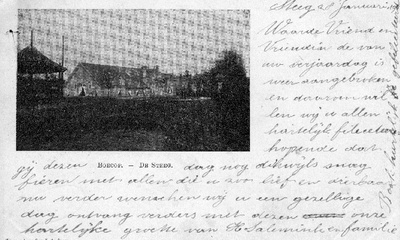 Steeg 2 Januari
Waarde Vriend en
Vriendin de van
uw verjaardag is
weer aangebroken
en daarom
wij u allen
hartelijk
hopende dat
BOECOP. – DE STEEG.
gij dezen dag nog dikwijls mag
vieren met allen die u zoo lief en dierbaar
nu verder wenschen wij u een gezellige
dag ontvang verders met dezen onze
hartelijke groete van en familie